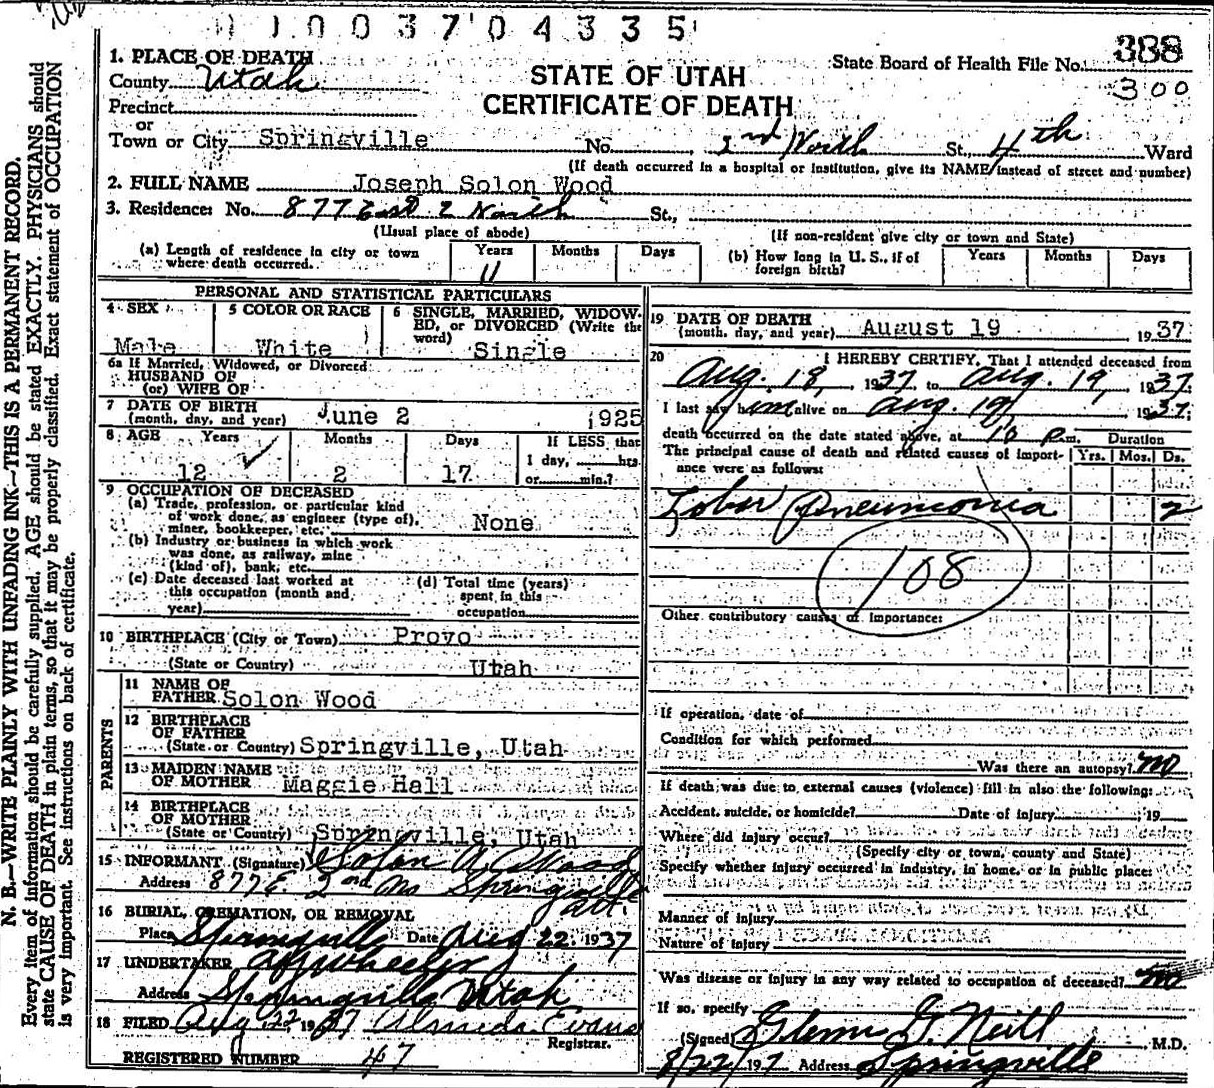 1003704335
1. PLACE OF DEATH
County Utah
Precinct
or
Town or City Springville No. 2nd North St., 4th Ward
(If death occurred in a hospital or institution, give its NAME instead of street and number)
STATE OF UTAH
CERTIFICATE OF DEATH
State Board of Health File No. 388
300
2. FULL NAME Joseph Solon Wood
3. Residence: No. 877 East 2 North St.,
(Usual place of abode) (If non-resident give city or town and State)
(a) Length of residence in city or town where death occurred. Years 11 Months Days
(b) How long in U. S., if of foreign birth? Years Months Days
PERSONAL AND STATISTICAL PARTICULARS
4 SEX Male
5 COLOR OR RACE White
6 SINGLE, MARRIED, WIDOWED, or DIVORCED (Write the word) Single
6a If Married, Widowed, or Divorced
HUSBAND OF
(or) WIFE OF
7 DATE OF BIRTH
(month, day, and year) June 2 1925
8 AGE Years 12 Months 2 Days 17
If LESS than
1 day, hrs.
or min.?
9 OCCUPATION OF DECEASED
(a) Trade, profession, or particular kind
of work done, as engineer (type of),
miner, bookkeeper, etc. None
(b) Industry or business in which work
was done, as railway, mine
(kind of), bank, etc.
(c) Date deceased last worked at
this occupation (month and
year)
(d) Total time (years)
spent in this
occupation
10 BIRTHPLACE (City or Town) Provo
(State or Country) Utah
PARENTS
11 NAME OF
FATHER Solon Wood
12 BIRTHPLACE
OF FATHER
(State or Country) Springville, Utah
13 MAIDEN NAME
OF MOTHER Maggie Hall
14 BIRTHPLACE
OF MOTHER
(State or Country) Springville, Utah
15 INFORMANT (Signature) Solon A. Wood
Address 877 E. 2nd No Springville
16 BURIAL, CREMATION, OR REMOVAL
Place Springville Date Aug 22, 1937
17 UNDERTAKER Wheeler
Address Springville Utah
18 FILED Aug 22 1937 Almeda Evans
Registrar.
REGISTERED NUMBER 47
19 DATE OF DEATH
(month, day, and year) August 19 1937
20 I HEREBY CERTIFY, That I attended deceased from
Aug. 18, 1937 to Aug. 19, 1937
I last saw him alive on Aug. 19, 1937.
death occurred on the date stated above, at 10 P.m. Duration
The principal cause of death and related causes of importance were as follows: Yrs. Mos. Ds.
Lobar Pneumonia 2
108
Other contributory causes of importance:
If operation, date of
Condition for which performed
Was there an autopsy? no
If death was due to external causes (violence) fill in also the following:
Accident, suicide, or homicide? Date of injury 19
Where did injury occur?
(Specify city or town, county and State)
Specify whether injury occurred in industry, in home, or in public place:
Manner of injury
Nature of injury
Was disease or injury in any way related to occupation of deceased? no
If so, specify
(Signed) Glenn G. Neill M.D.
8/22/197 Address Springville
N. B.—WRITE PLAINLY WITH UNFADING INK—THIS IS A PERMANENT RECORD.
Every item of information should be carefully supplied. AGE should be stated EXACTLY. PHYSICIANS should
state CAUSE OF DEATH in plain terms, so that it may be properly classified. Exact statement of OCCUPATION
is very important. See instructions on back of certificate.